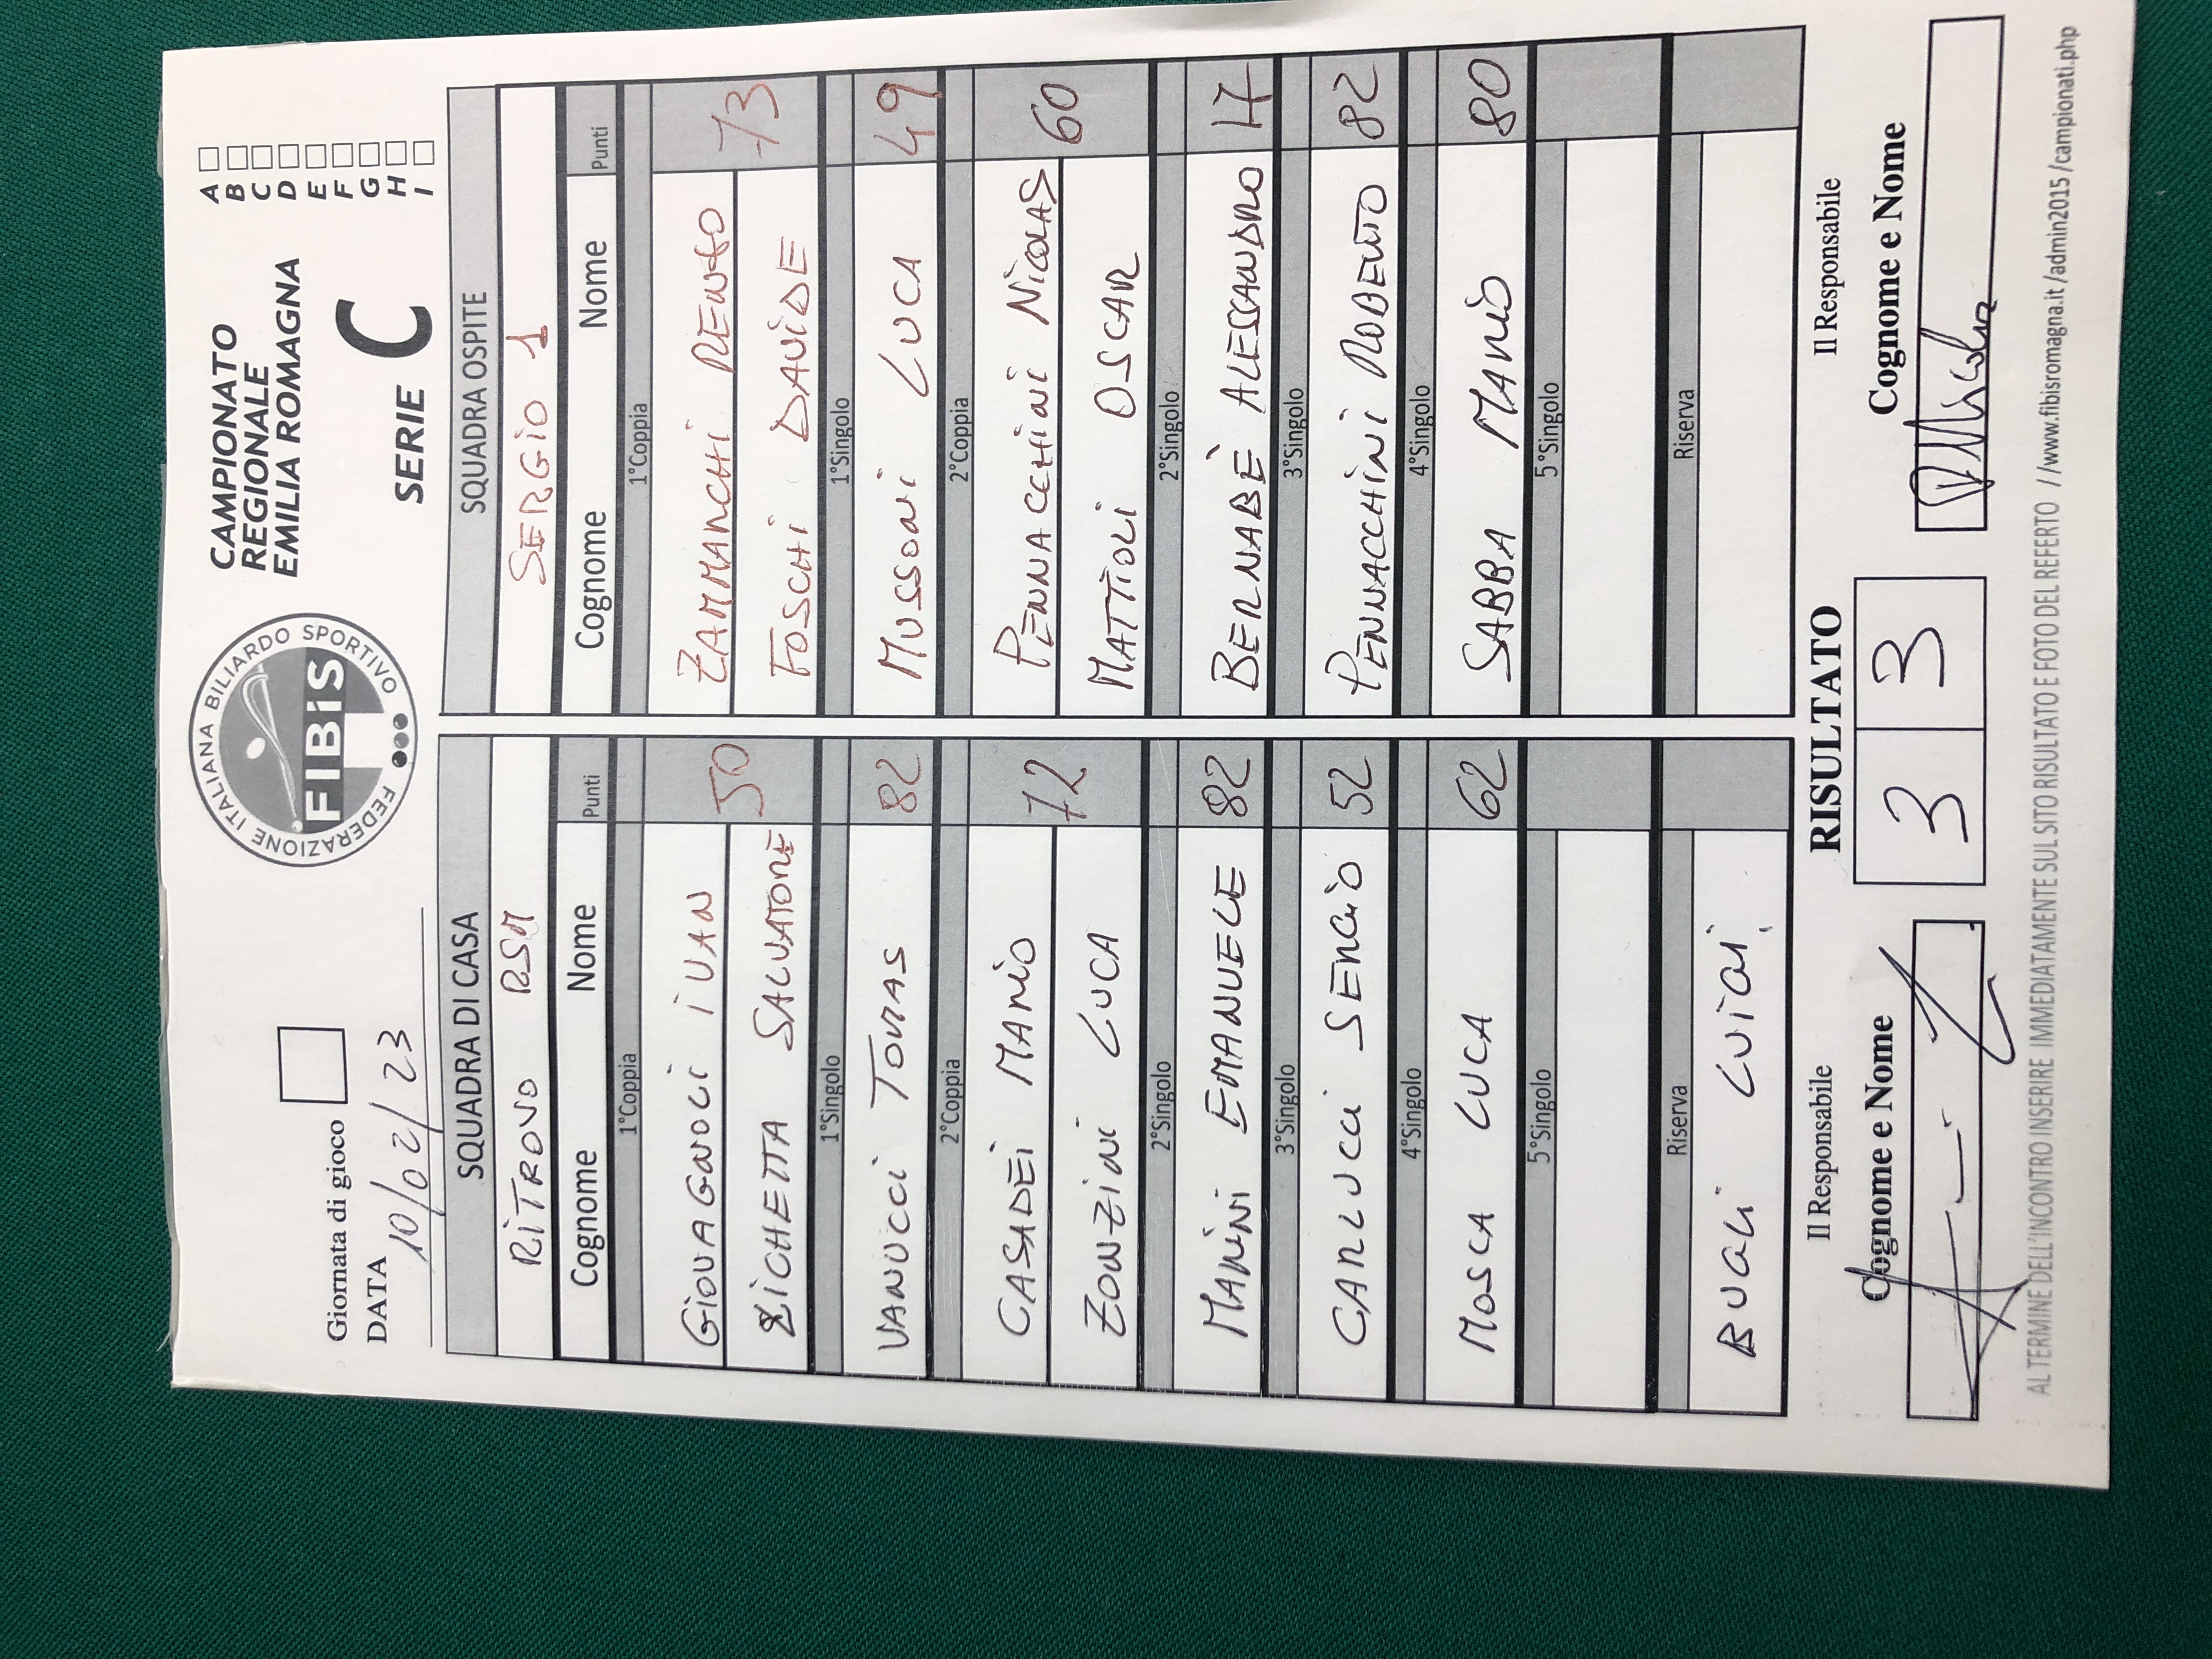 Giornata di gioco
DATA 10/02/23
FEDERAZIONE ITALIANA BILIARDO SPORTIVO
FIBiS
CAMPIONATO
REGIONALE
EMILIA ROMAGNA
SERIE C
A
B
C
D
E
F
G
H
I
SQUADRA DI CASA
RITROVO RSM
Cognome Nome Punti
1°Coppia
GIOVAGNOLI IVAN
ZICHETTA SALVATORE
50
1°Singolo
VANUCCI TOMAS 82
2°Coppia
CASADEI MARIO
ZONZINI LUCA
72
2°Singolo
MANINI EMANUELE 82
3°Singolo
CARLUCCI SERGIO 52
4°Singolo
MOSCA LUCA 62
5°Singolo
Riserva
BUGLI LUIGI
SQUADRA OSPITE
SERGIO 1
Cognome Nome Punti
1°Coppia
ZAMMARCHI RENZO
FOSCHI DAVIDE
73
1°Singolo
MUSSONI LUCA 49
2°Coppia
PENNACCHINI NICOLAS
MATTIOLI OSCAR
60
2°Singolo
BERNABÈ ALESSANDRO 17
3°Singolo
PENNACCHINI ROBERTO 82
4°Singolo
SABBA MARIO 80
5°Singolo
Riserva
Il Responsabile
Cognome e Nome
RISULTATO
3 3
Il Responsabile
Cognome e Nome
AL TERMINE DELL'INCONTRO INSERIRE IMMEDIATAMENTE SUL SITO RISULTATO E FOTO DEL REFERTO //www.fibisromagna.it/admin2015/campionati.php